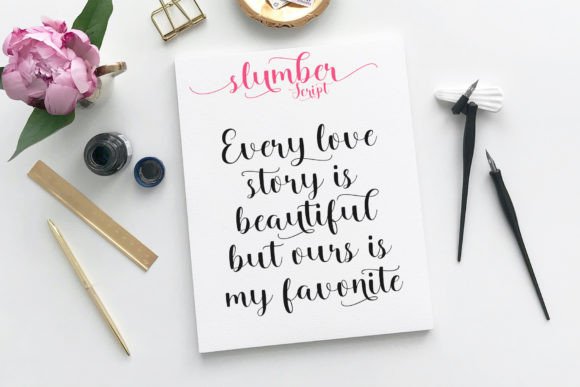 slumber
Script
Every love
story is
beautiful
but ours is
my favonite